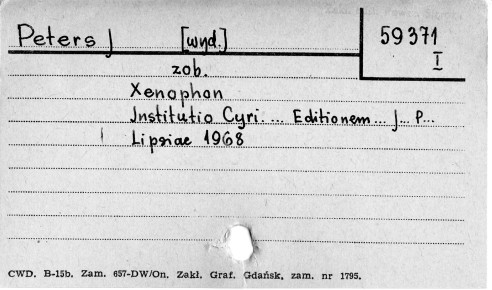 Peters J [wyd.] 59371
I
zob.
Xenophon
Institutio Cyri. ... Editionem ... J... P...
Lipsiae 1968
CWD. B-15b. Zam. 657-DW/On. Zakł. Graf. Gdańsk, zam. nr 1795.